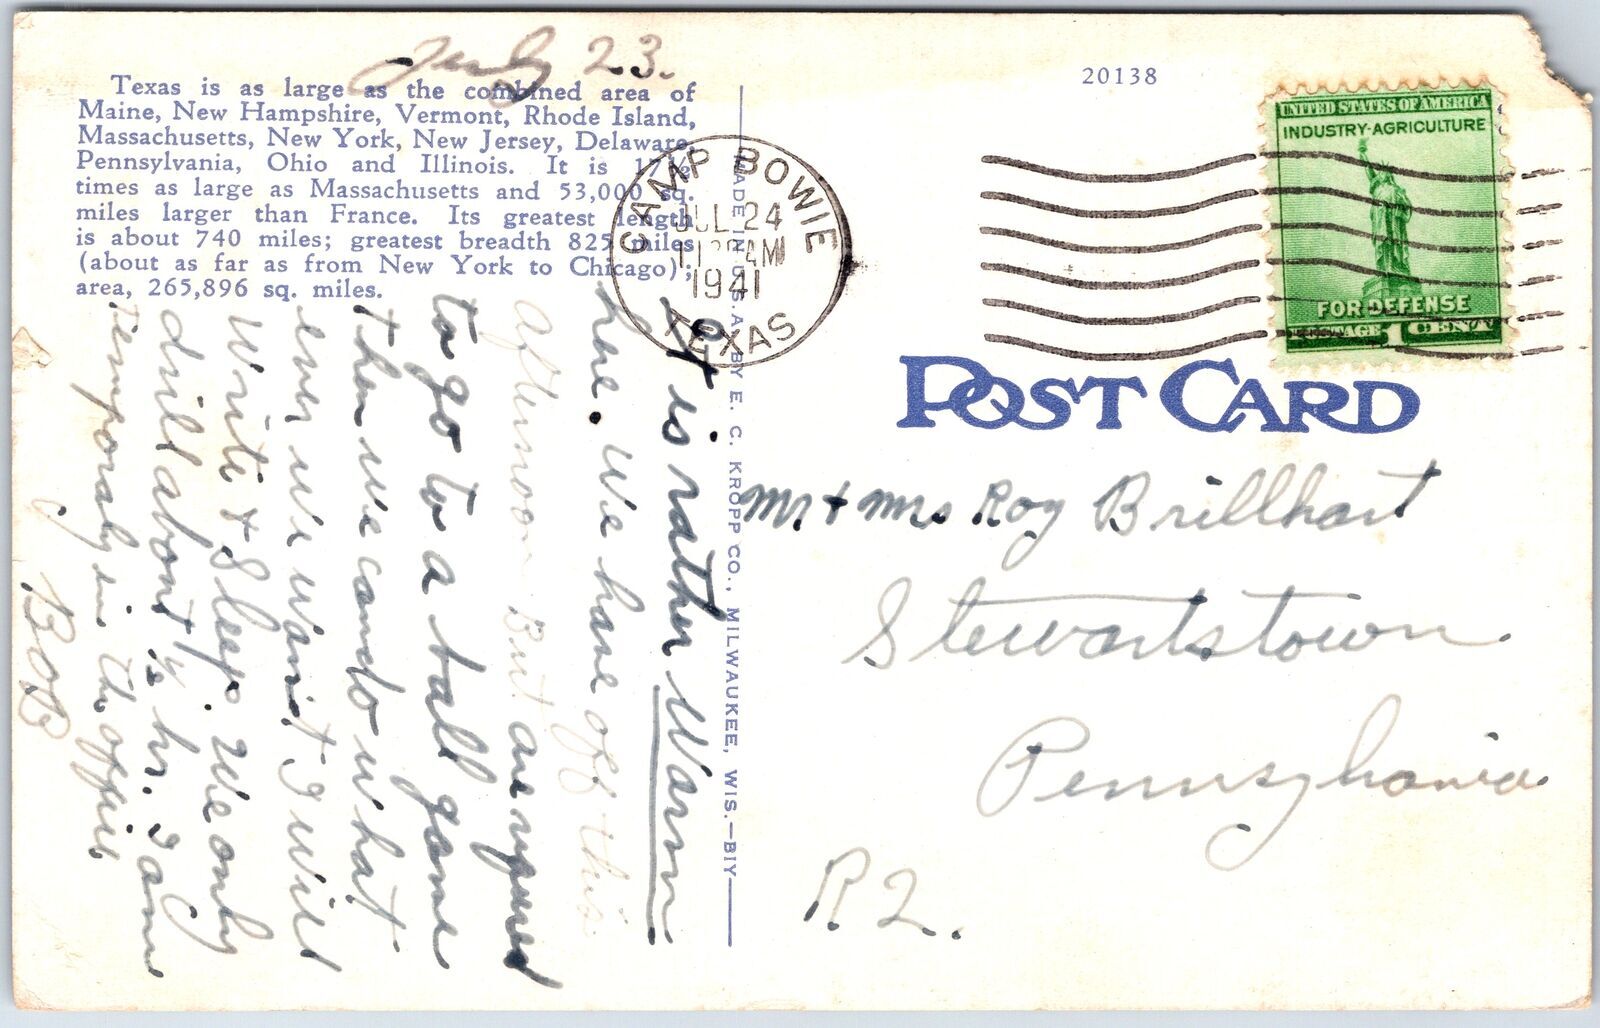 July 23.
Texas is as large as the combined area of
Maine, New Hampshire, Vermont, Rhode Island,
Massachusetts, New York, New Jersey, Delaware,
Pennsylvania, Ohio and Illinois. It is 17½
times as large as Massachusetts and 53,000 sq.
miles larger than France. Its greatest length
is about 740 miles; greatest breadth 825 miles
(about as far as from New York to Chicago);
area, 265,896 sq. miles.
It is rather Warm
here. We have off this
afternoon But are required
to go to a ball game
then we can do what
ever we want. I will
Write & Sleep. We only
drill about ½ hr. I am
Temporaly in the office
Bob
MADE IN U.S.A. BY E. C. KROPP CO., MILWAUKEE, WIS.—BIY
CAMP BOWIE
JUL 24
AM
1941
TEXAS
20138
UNITED STATES OF AMERICA
INDUSTRY-AGRICULTURE
FOR DEFENSE
POSTAGE 1 CENT
POST CARD
Mr + Mrs Roy Brillhart
Stewartstown
Pennsylvania
R.2.